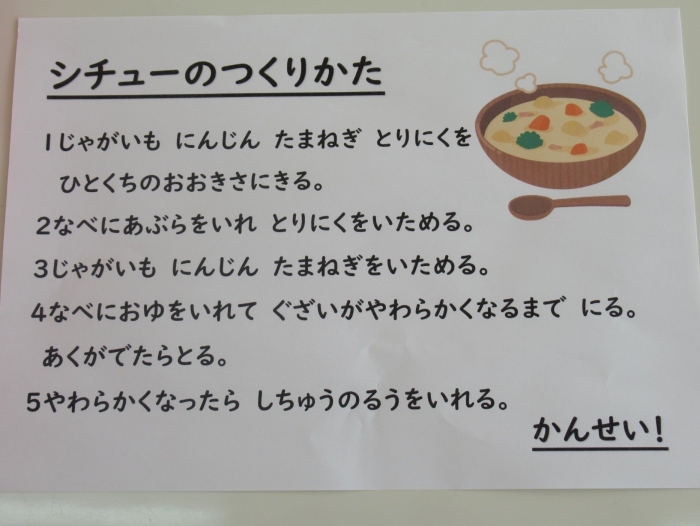 シチューのつくりかた
1じゃがいも にんじん たまねぎ とりにくを
ひとくちのおおきさにきる。
2なべにあぶらをいれ とりにくをいためる。
3じゃがいも にんじん たまねぎをいためる。
4なべにおゆをいれて ぐざいがやわらかくなるまで にる。
あくがでたらとる。
5やわらかくなったら しちゅうのるうをいれる。
かんせい!